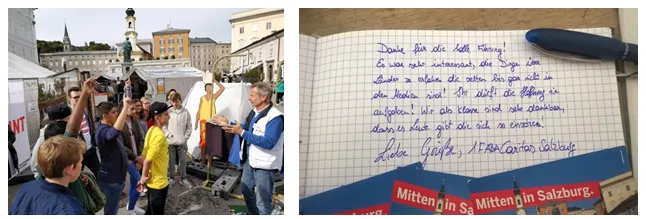 NT
Danke für die tolle Führung!
Es war sehr interessant, die Dinge über
Länder zu erfahren die selten bis gar nicht in
den Medien sind! Ihr dürft die Hoffnung nie
aufgeben! Wir als Klasse sind sehr dankbar,
dass es Leute gibt die sich so einsetzen.
Liebe Grüße, 1 FABA Caritas Salzburg
Mitten in Sa
Mitten in Salzburg.